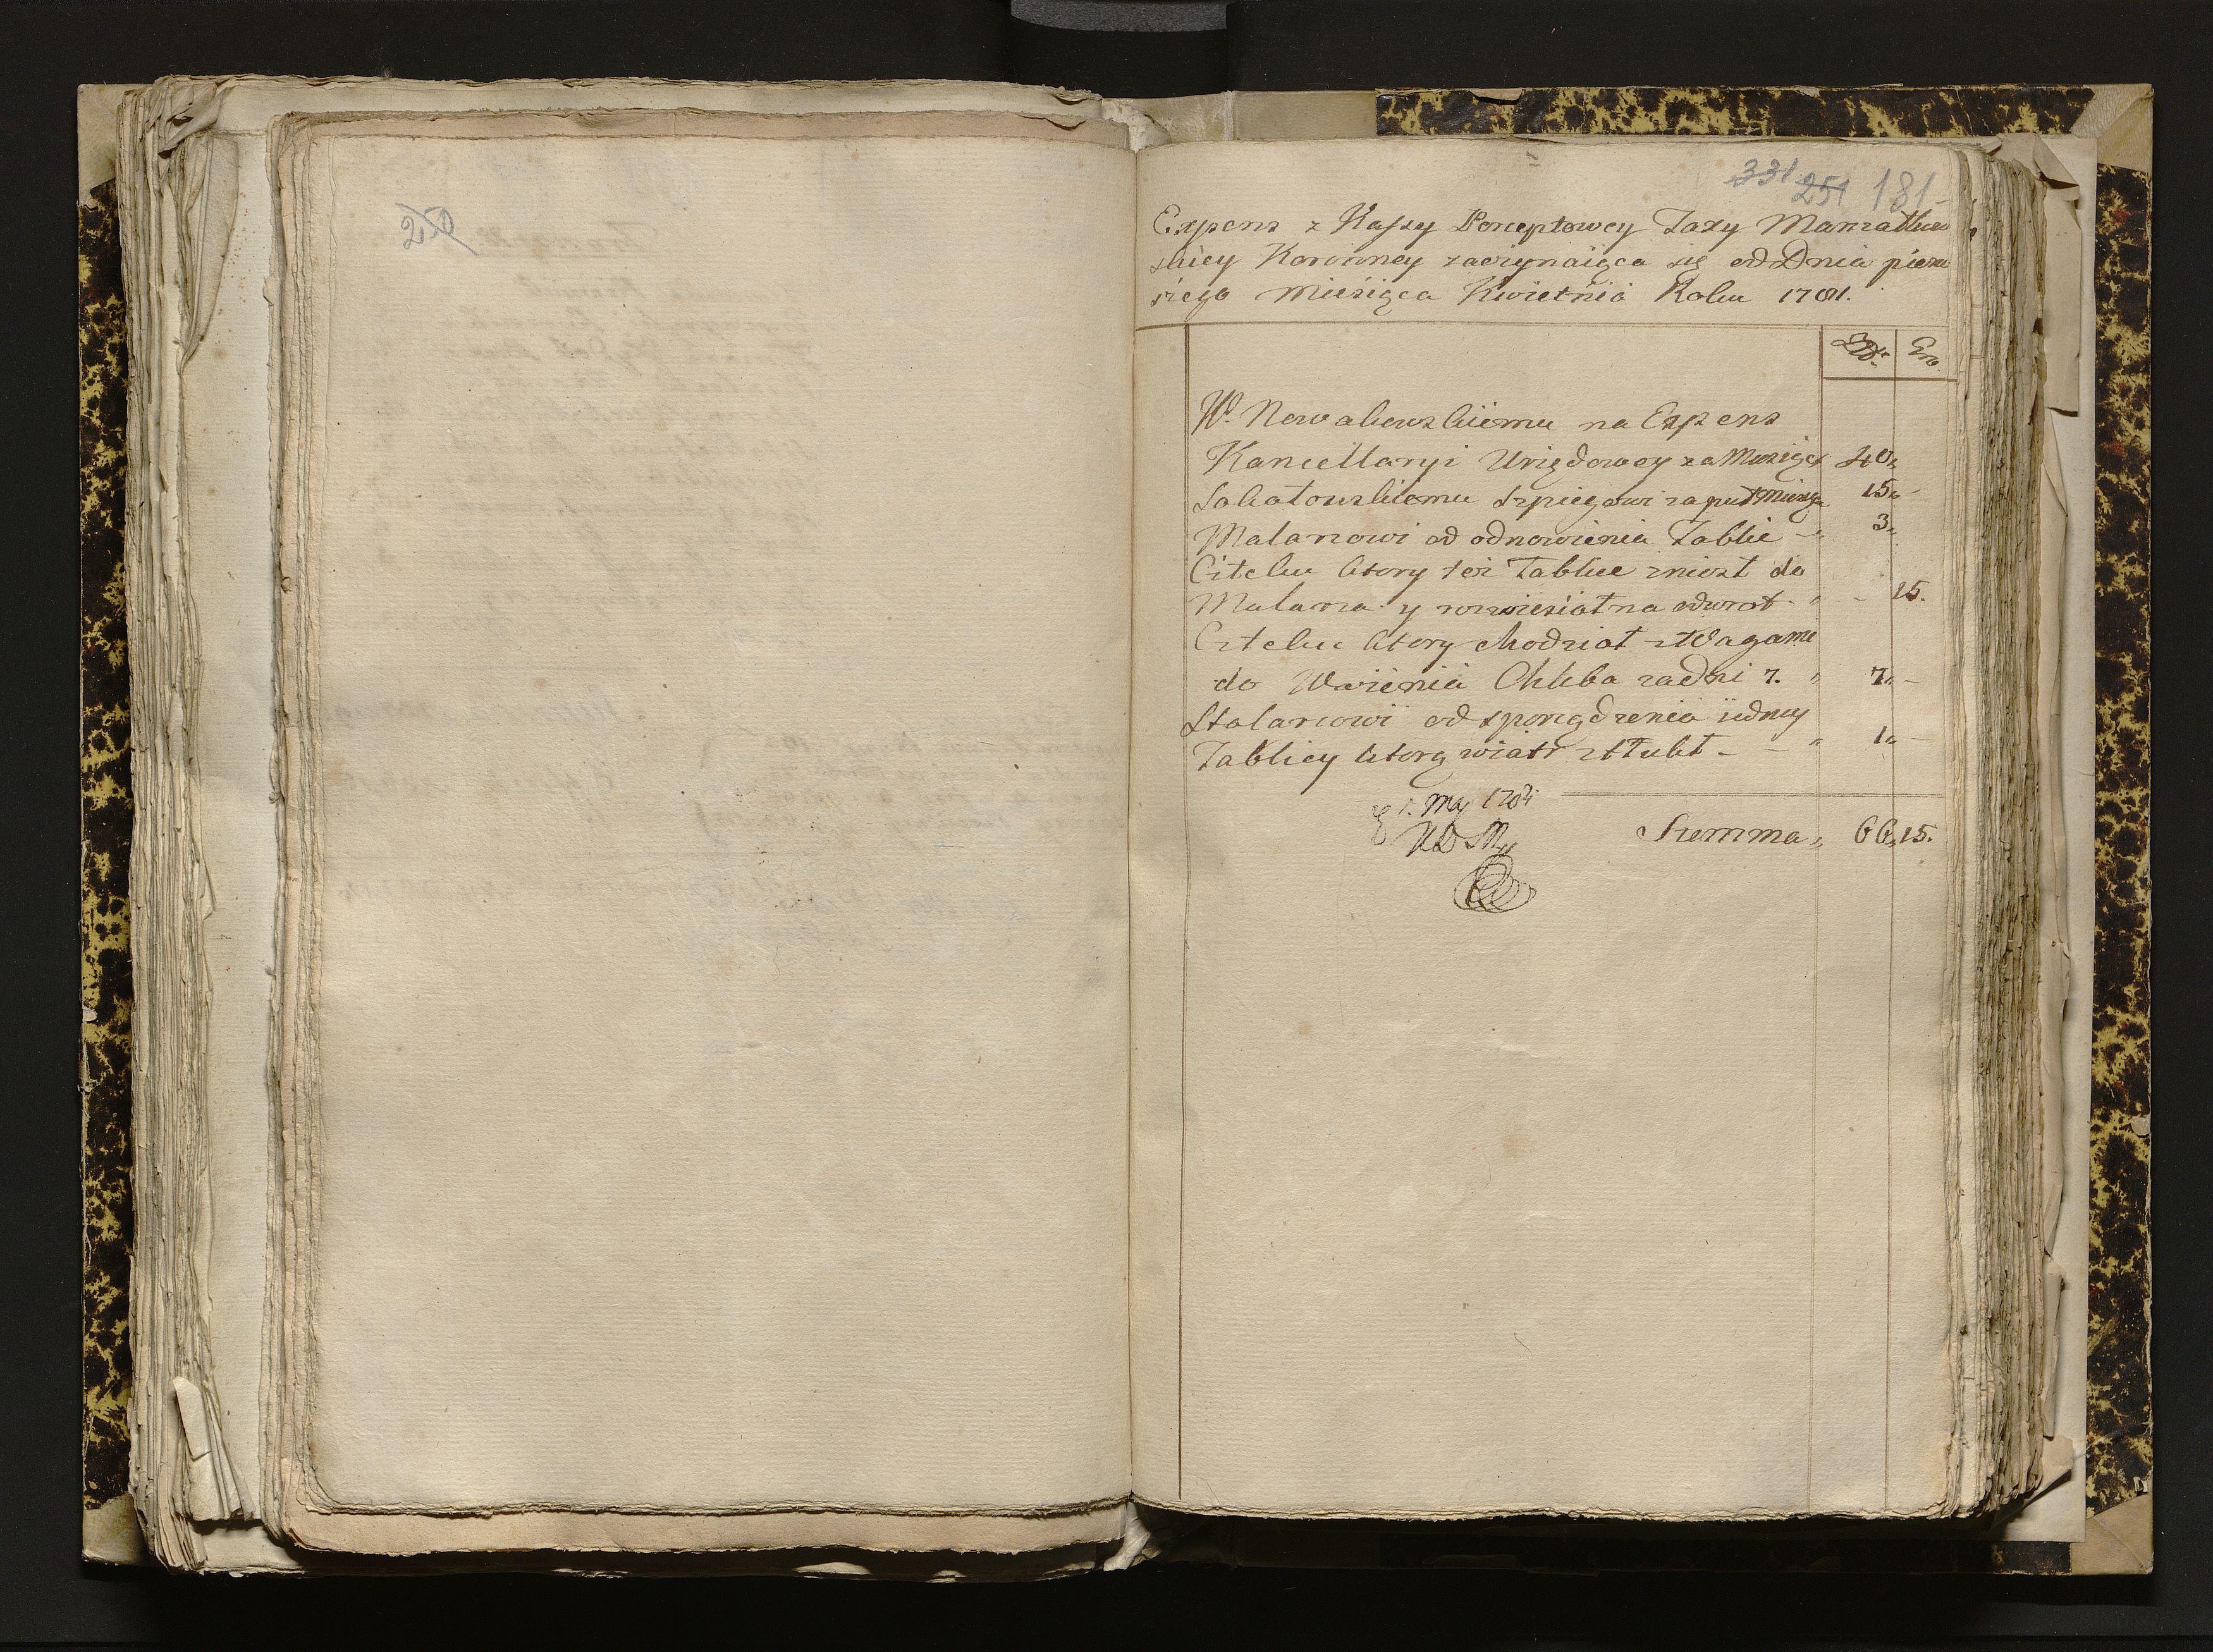 250
331 251 181
Expens z Kassy Perceptowey Taxy Marszałkow
skiey Koronney zaczynaiąca się od Dnia pierw
szego Miesiąca Kwietnia Roku 1781.
Zł. Gro.
W. Nowakowskiemu na Expens
Kancellaryi Urzędowey za Miesiąc 40 „
Sakatowskiemu Szpiegowi za puł Miesiąca 15 „ -
Malarzowi od odnowienia Tablic - „ 3 „
Citelu ktory też Tablice zniosł do
Malarza y rozwiesiał na odwrot - „ - 15.
Citelu ktory chodział z Wagame
do Ważenia Chleba za dni 7. „ 7 „ -
Stolarzowi od sporządzenia iedney
Tablicy ktorą wiatr stłukł - - „ 1 „ -
1. May 1781
Summa „ 66 „ 15.